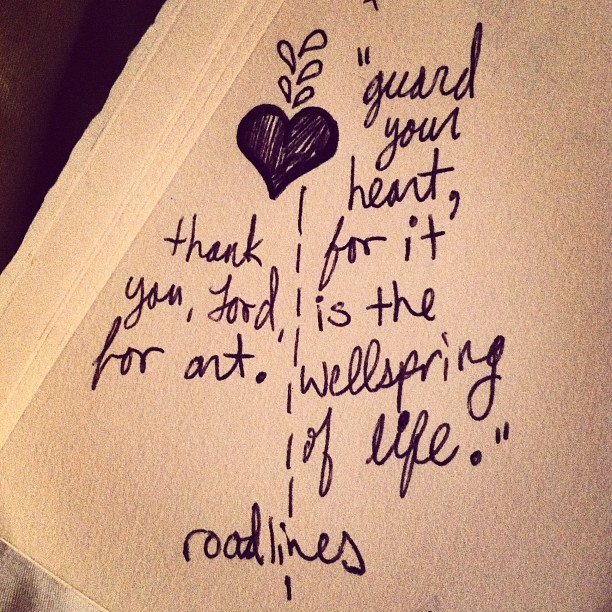 "guard
your
heart,
for it
is the
wellspring
of life."
thank
you, Lord,
for art.
roadlines